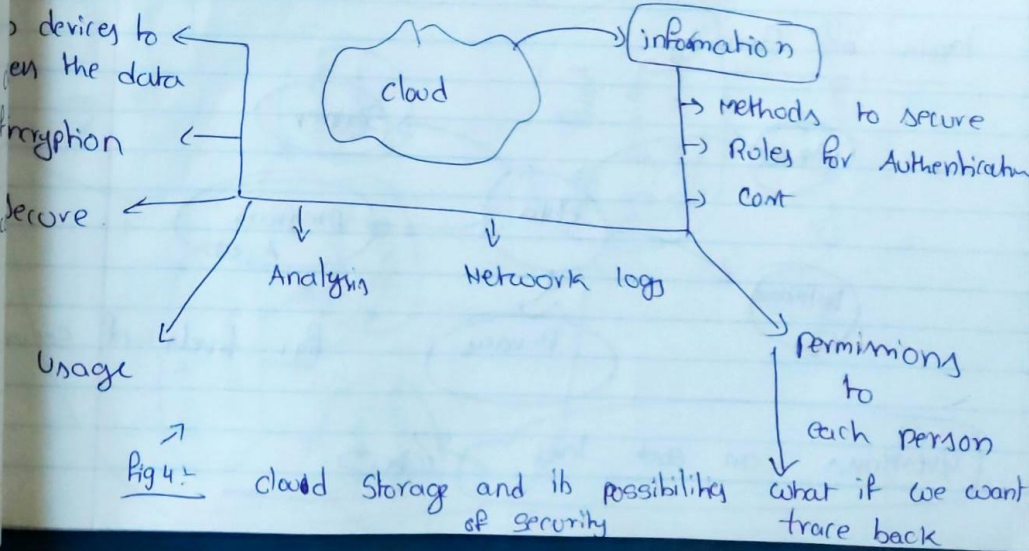 devices to
the data
Encryption
Secure
cloud
information
Methods to secure
Roles for Authentication
Cost
Analysis
Network logs
Usage
permissions
to
each person
what if we want
trace back
Fig 4:- cloud Storage and its possibilities
of security